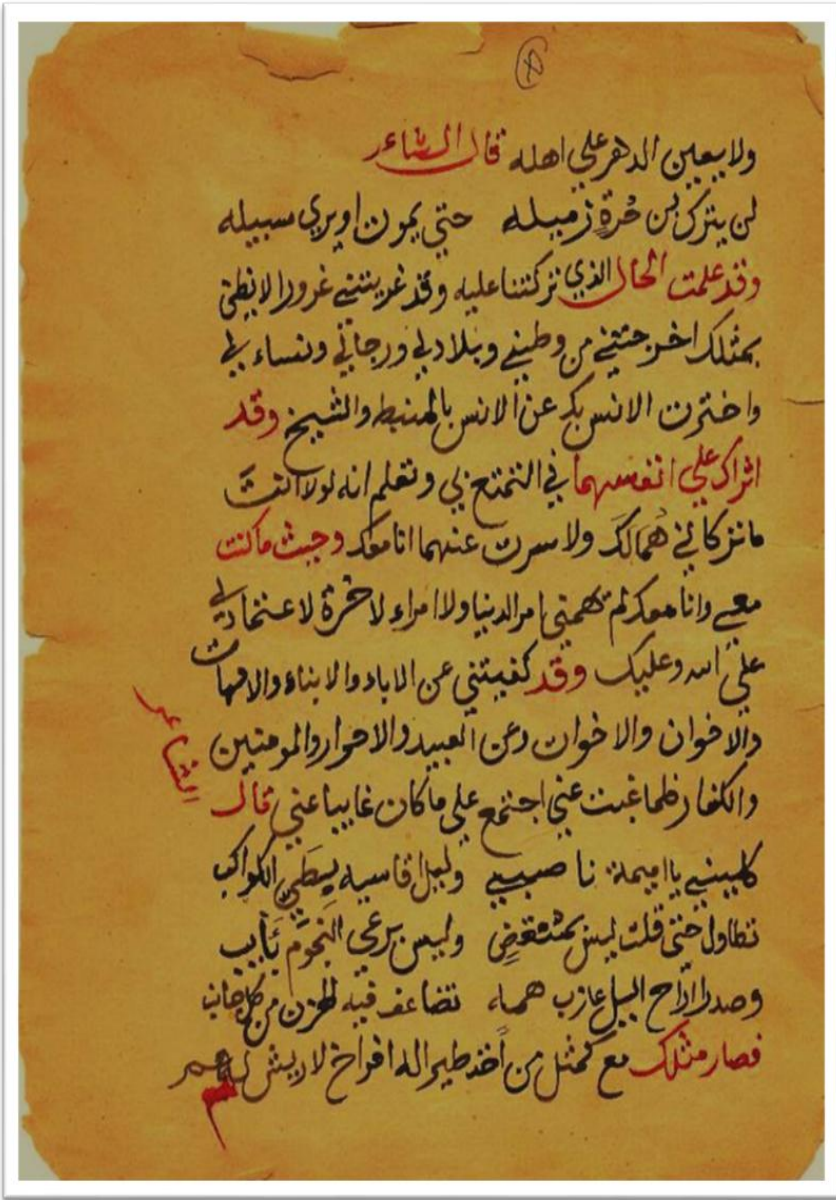 ولا يعين الدهر علي اهله قال الشاعر
لن يترك بن حرة زميله حتي يموت او يري سبيله
وقد علمت الحال الذي تركتنا عليه وقد غريتني غرور الا يظن
بمثلك اخرجتني من وطني وبلادي ورجاتي ونساءي
واخترت الانس بك عن الانس بالهنبط والشيخ وقد
اثراك علي انفسهما في التمتع بي وتعلم انه لولا انت
ما تركاني همالك ولا سرت عنهما انا معك وحيث ما كنت
معي وانا معك لم تهمني امر الدنيا ولا امراء لاخرة لاعتمادي
علي الله وعليك وقد كفيتني عن الاباء والابناء والامهات
والاخوان والاخوات وعن العبيد والاحرار والمومنين
والكفار فلما غبت عني اجتمع علي ما كان غايبا عني قال
الشاعر
كليني يا اميمة ناصبي وليل اقاسيه بطي الكواكب
تطاول حتي قلت ليس بمنقض وليس يرعي النجوم بايب
وصدر اراح اليل عازب همه تضاعف فيه الحزن من كل جانب
فصار مثلك مع كمثل من أخذ طير اله افراخ لا ريش لهم